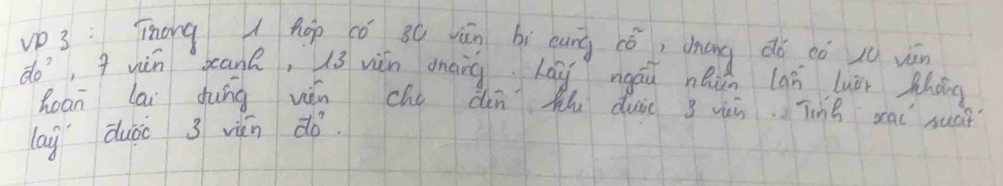 VD 3 : Trong 1 hộp có 30 viên bi cùng cỡ, trong đó có 10 viên
đỏ, 7 viên xanh, 13 viên trắng. Lấy ngẫu nhiên lần lượt không
hoàn lại từng viên cho đến khi được 3 viên. Tính xác suất
lấy được 3 viên đỏ.